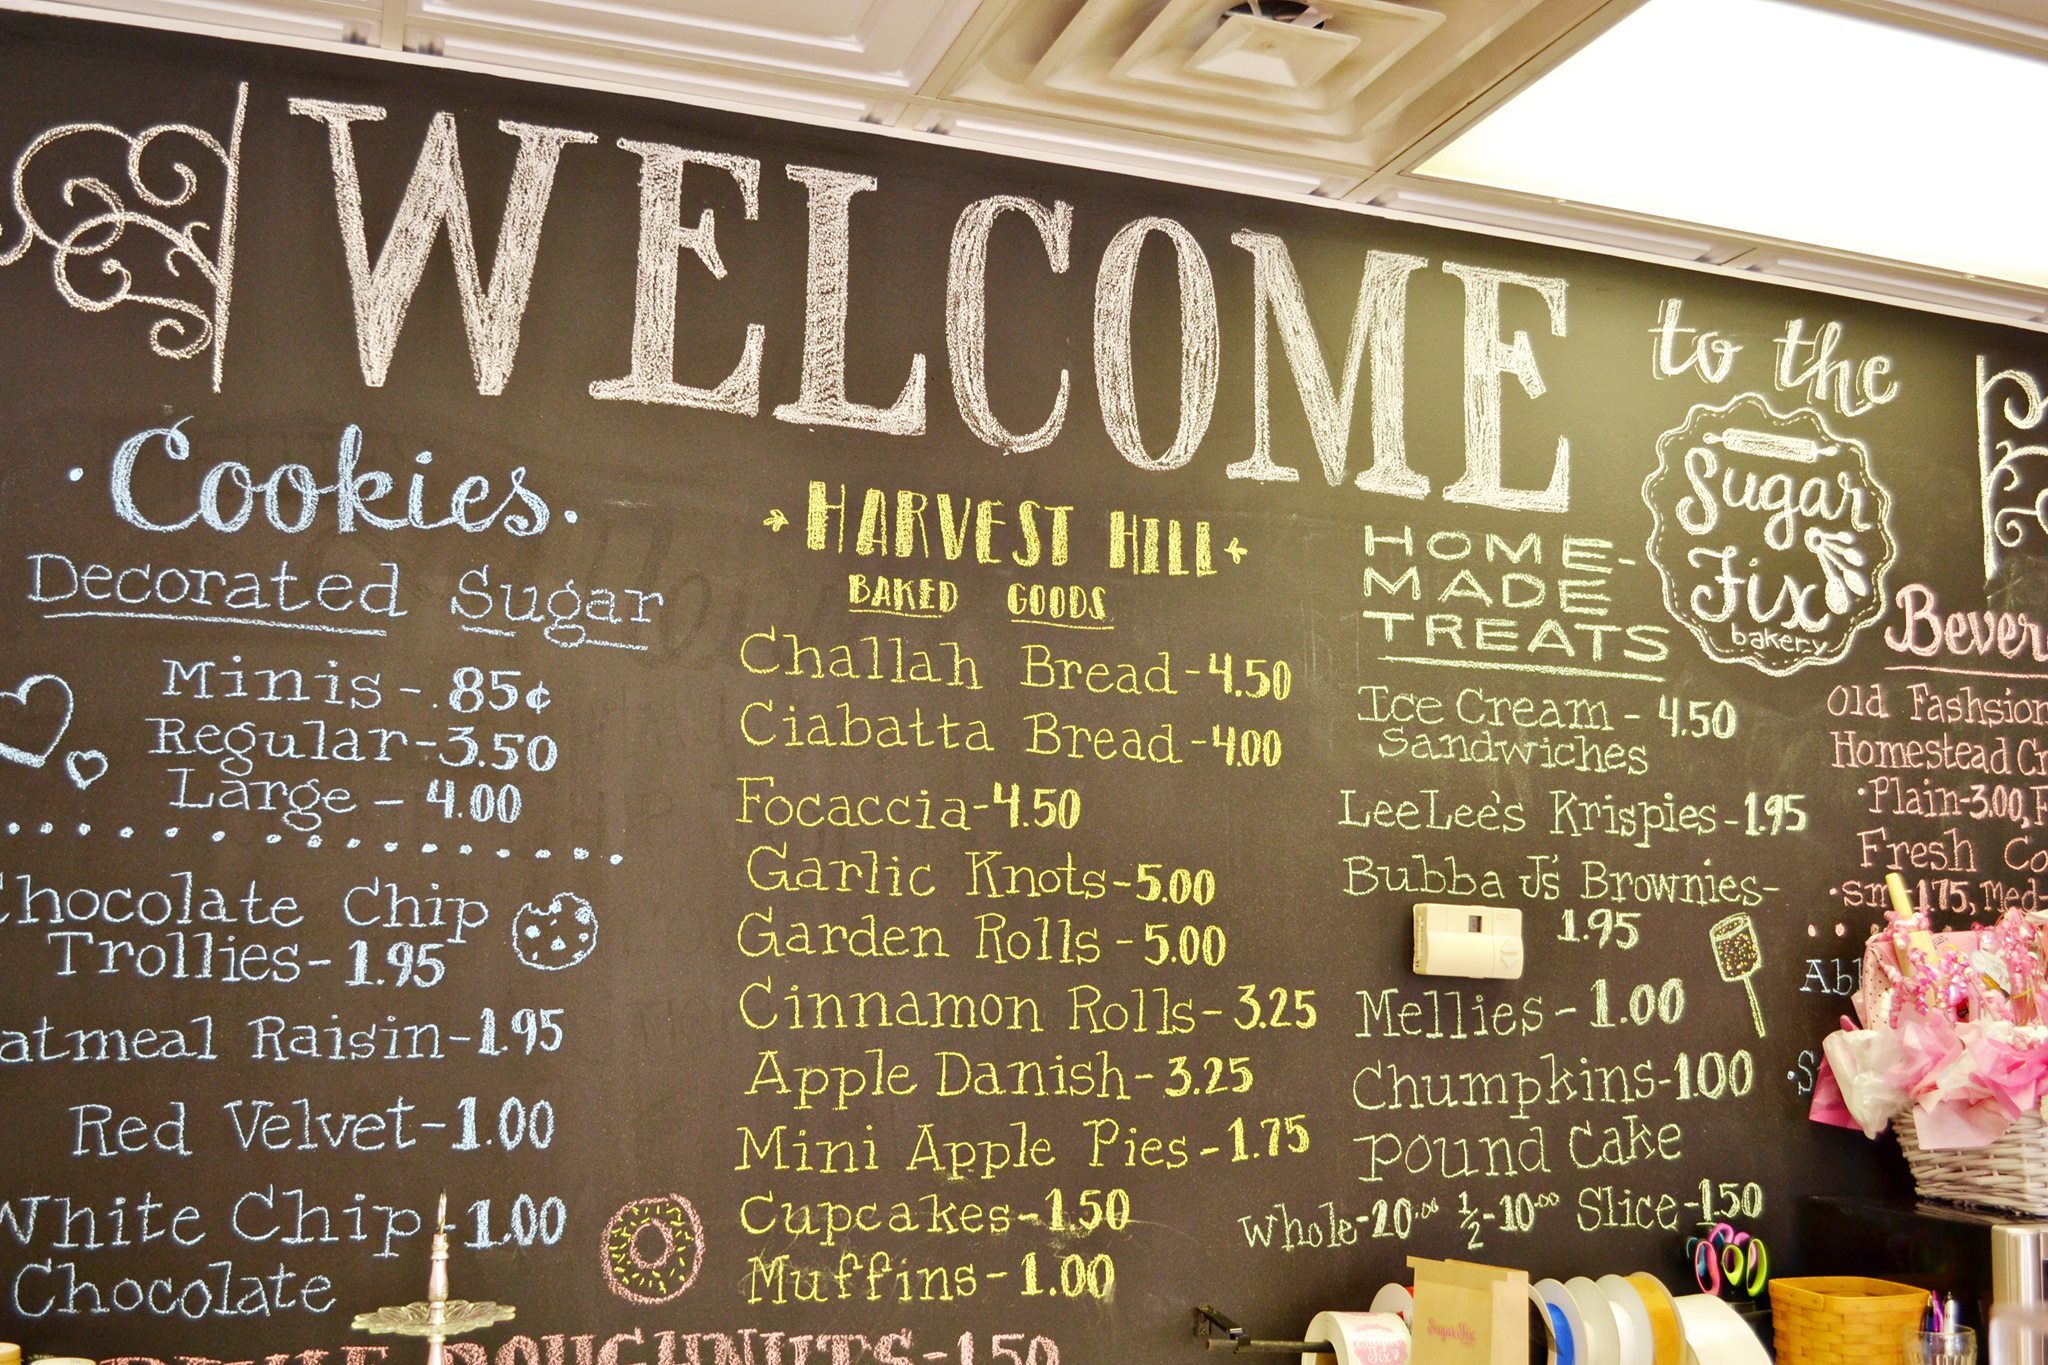 WELCOME
to the
Sugar
Fix
bakery
Cookies
Decorated Sugar
Minis - .85¢
Regular - 3.50
Large - 4.00
Chocolate Chip
Trollies - 1.95
Oatmeal Raisin - 1.95
Red Velvet - 1.00
White Chip - 1.00
Chocolate
HARVEST HILL
BAKED GOODS
Challah Bread - 4.50
Ciabatta Bread - 4.00
Focaccia - 4.50
Garlic Knots - 5.00
Garden Rolls - 5.00
Cinnamon Rolls - 3.25
Apple Danish - 3.25
Mini Apple Pies - 1.75
Cupcakes - 1.50
Muffins - 1.00
DOUGHNUTS - 1.50
HOME-
MADE
TREATS
Ice Cream - 4.50
Sandwiches
LeeLee's Krispies - 1.95
Bubba J's Brownies -
1.95
Mellies - 1.00
Chumpkins - 1.00
Pound Cake
Whole - 20.00 1/2 - 10.00 Slice - 1.50
Bever
Old Fashsion
Homestead Cr
• Plain - 3.00, F
Fresh Co
• sm - 1.75, Med -
Sugar Fix